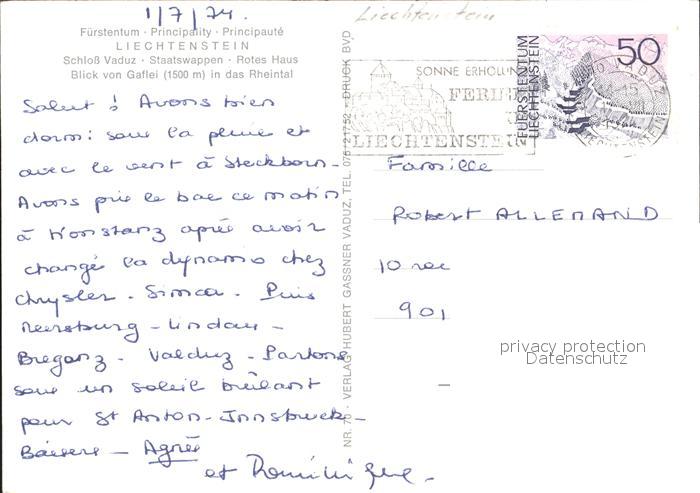 1/7/74.
Liechtenstein
Fürstentum · Principality · Principauté
LIECHTENSTEIN
Schloß Vaduz · Staatswappen · Rotes Haus
Blick von Gaflei (1500 m) in das Rheintal
Salut ! Avons bien
dormi sous la pluie et
avec le vent à Steckborn -
Avons pris le bac ce matin
à Konstanz après avoir
changé la dynamo chez
Chrysler - Simca. Puis
Meersburg - Lindau -
Bregenz - Valduz - Partons
sous un soleil brûlant
pour St Anton - Innsbruck -
Baisers -
et Dominique.
NR. 70 · VERLAG HUBERT GASSNER VADUZ, TEL. 075/21752 · DRUCK BVD
SONNE ERHOLUNG
FERIEN
IN
LIECHTENSTEIN
FÜRSTENTUM
LIECHTENSTEIN
50
VADUZ
LIECHTENSTEIN
Famille
Robert ALLEMAND
10 rue
901
privacy protection
Datenschutz